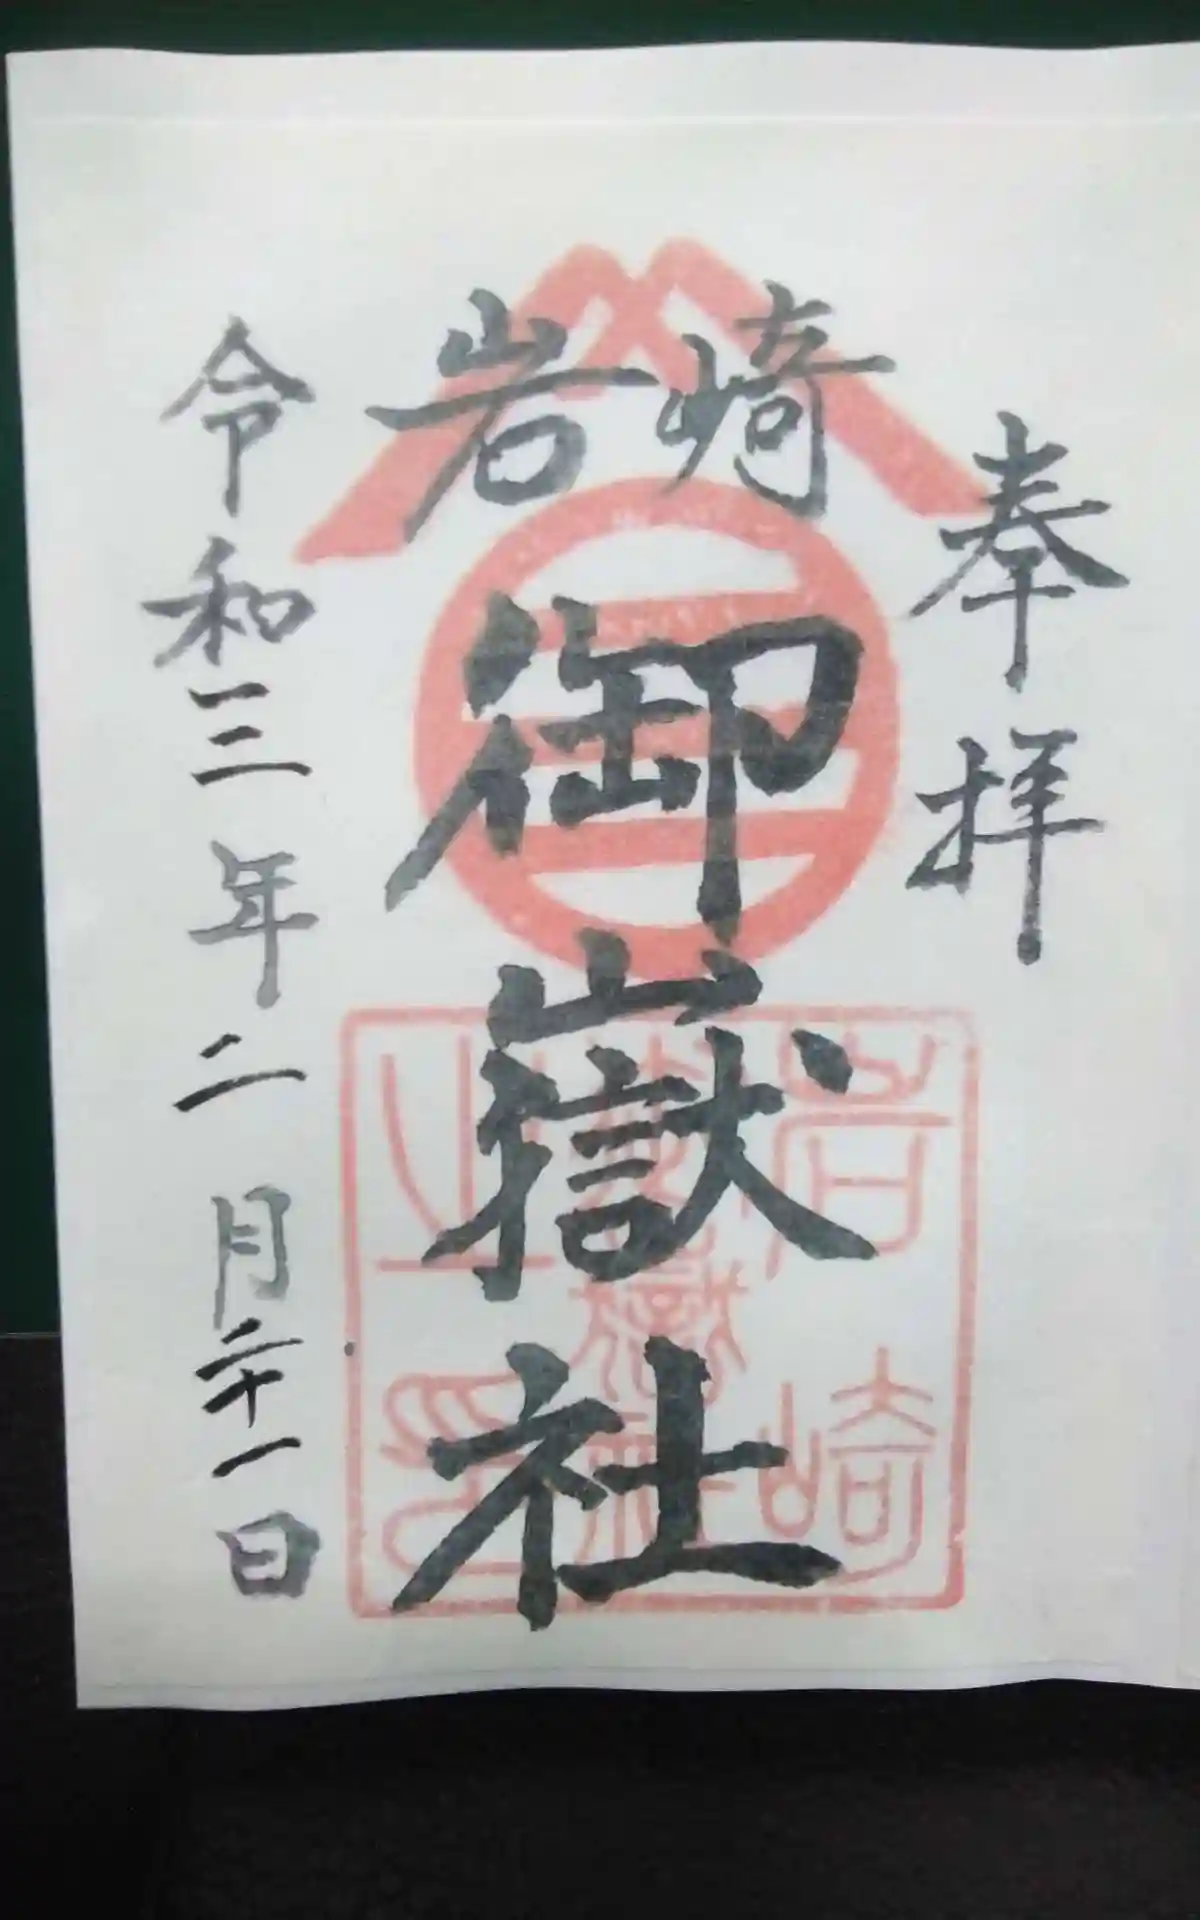 奉拝
岩崎
御嶽社
令和三年二月二十一日
岩崎
御嶽社
之印